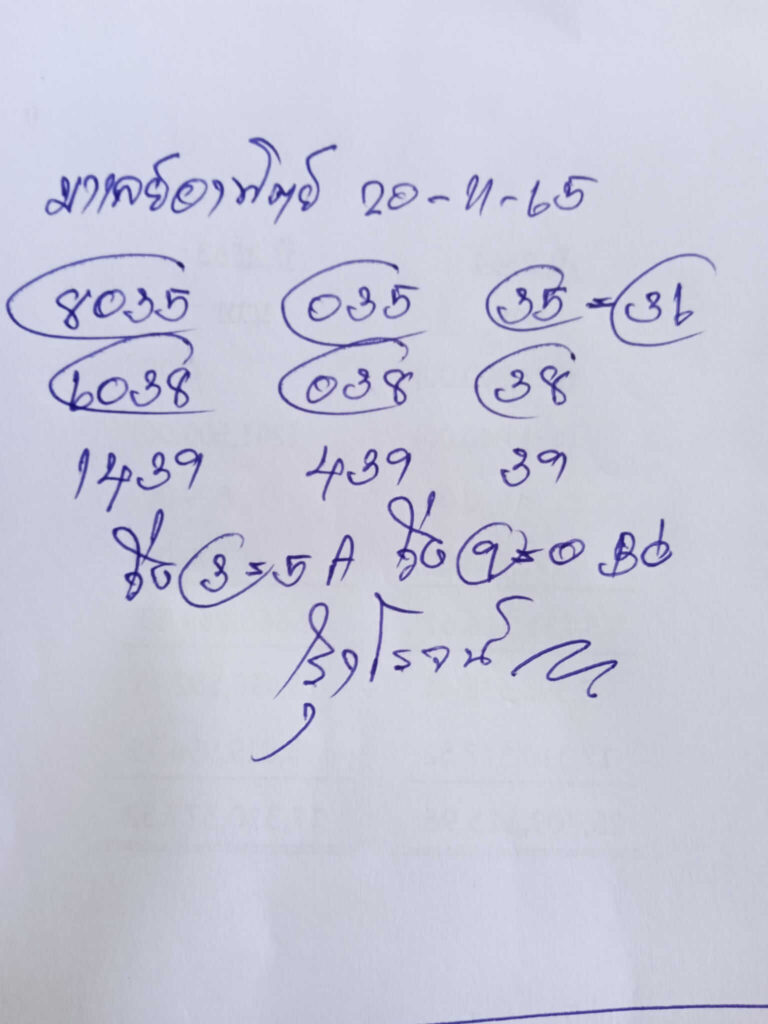 มาเลย์อาทิตย์ 20-11-65
8035 035 35 = 36
6038 038 38
1439 439 39
วิ่ง 3 = 5 A วิ่ง 9 = 0